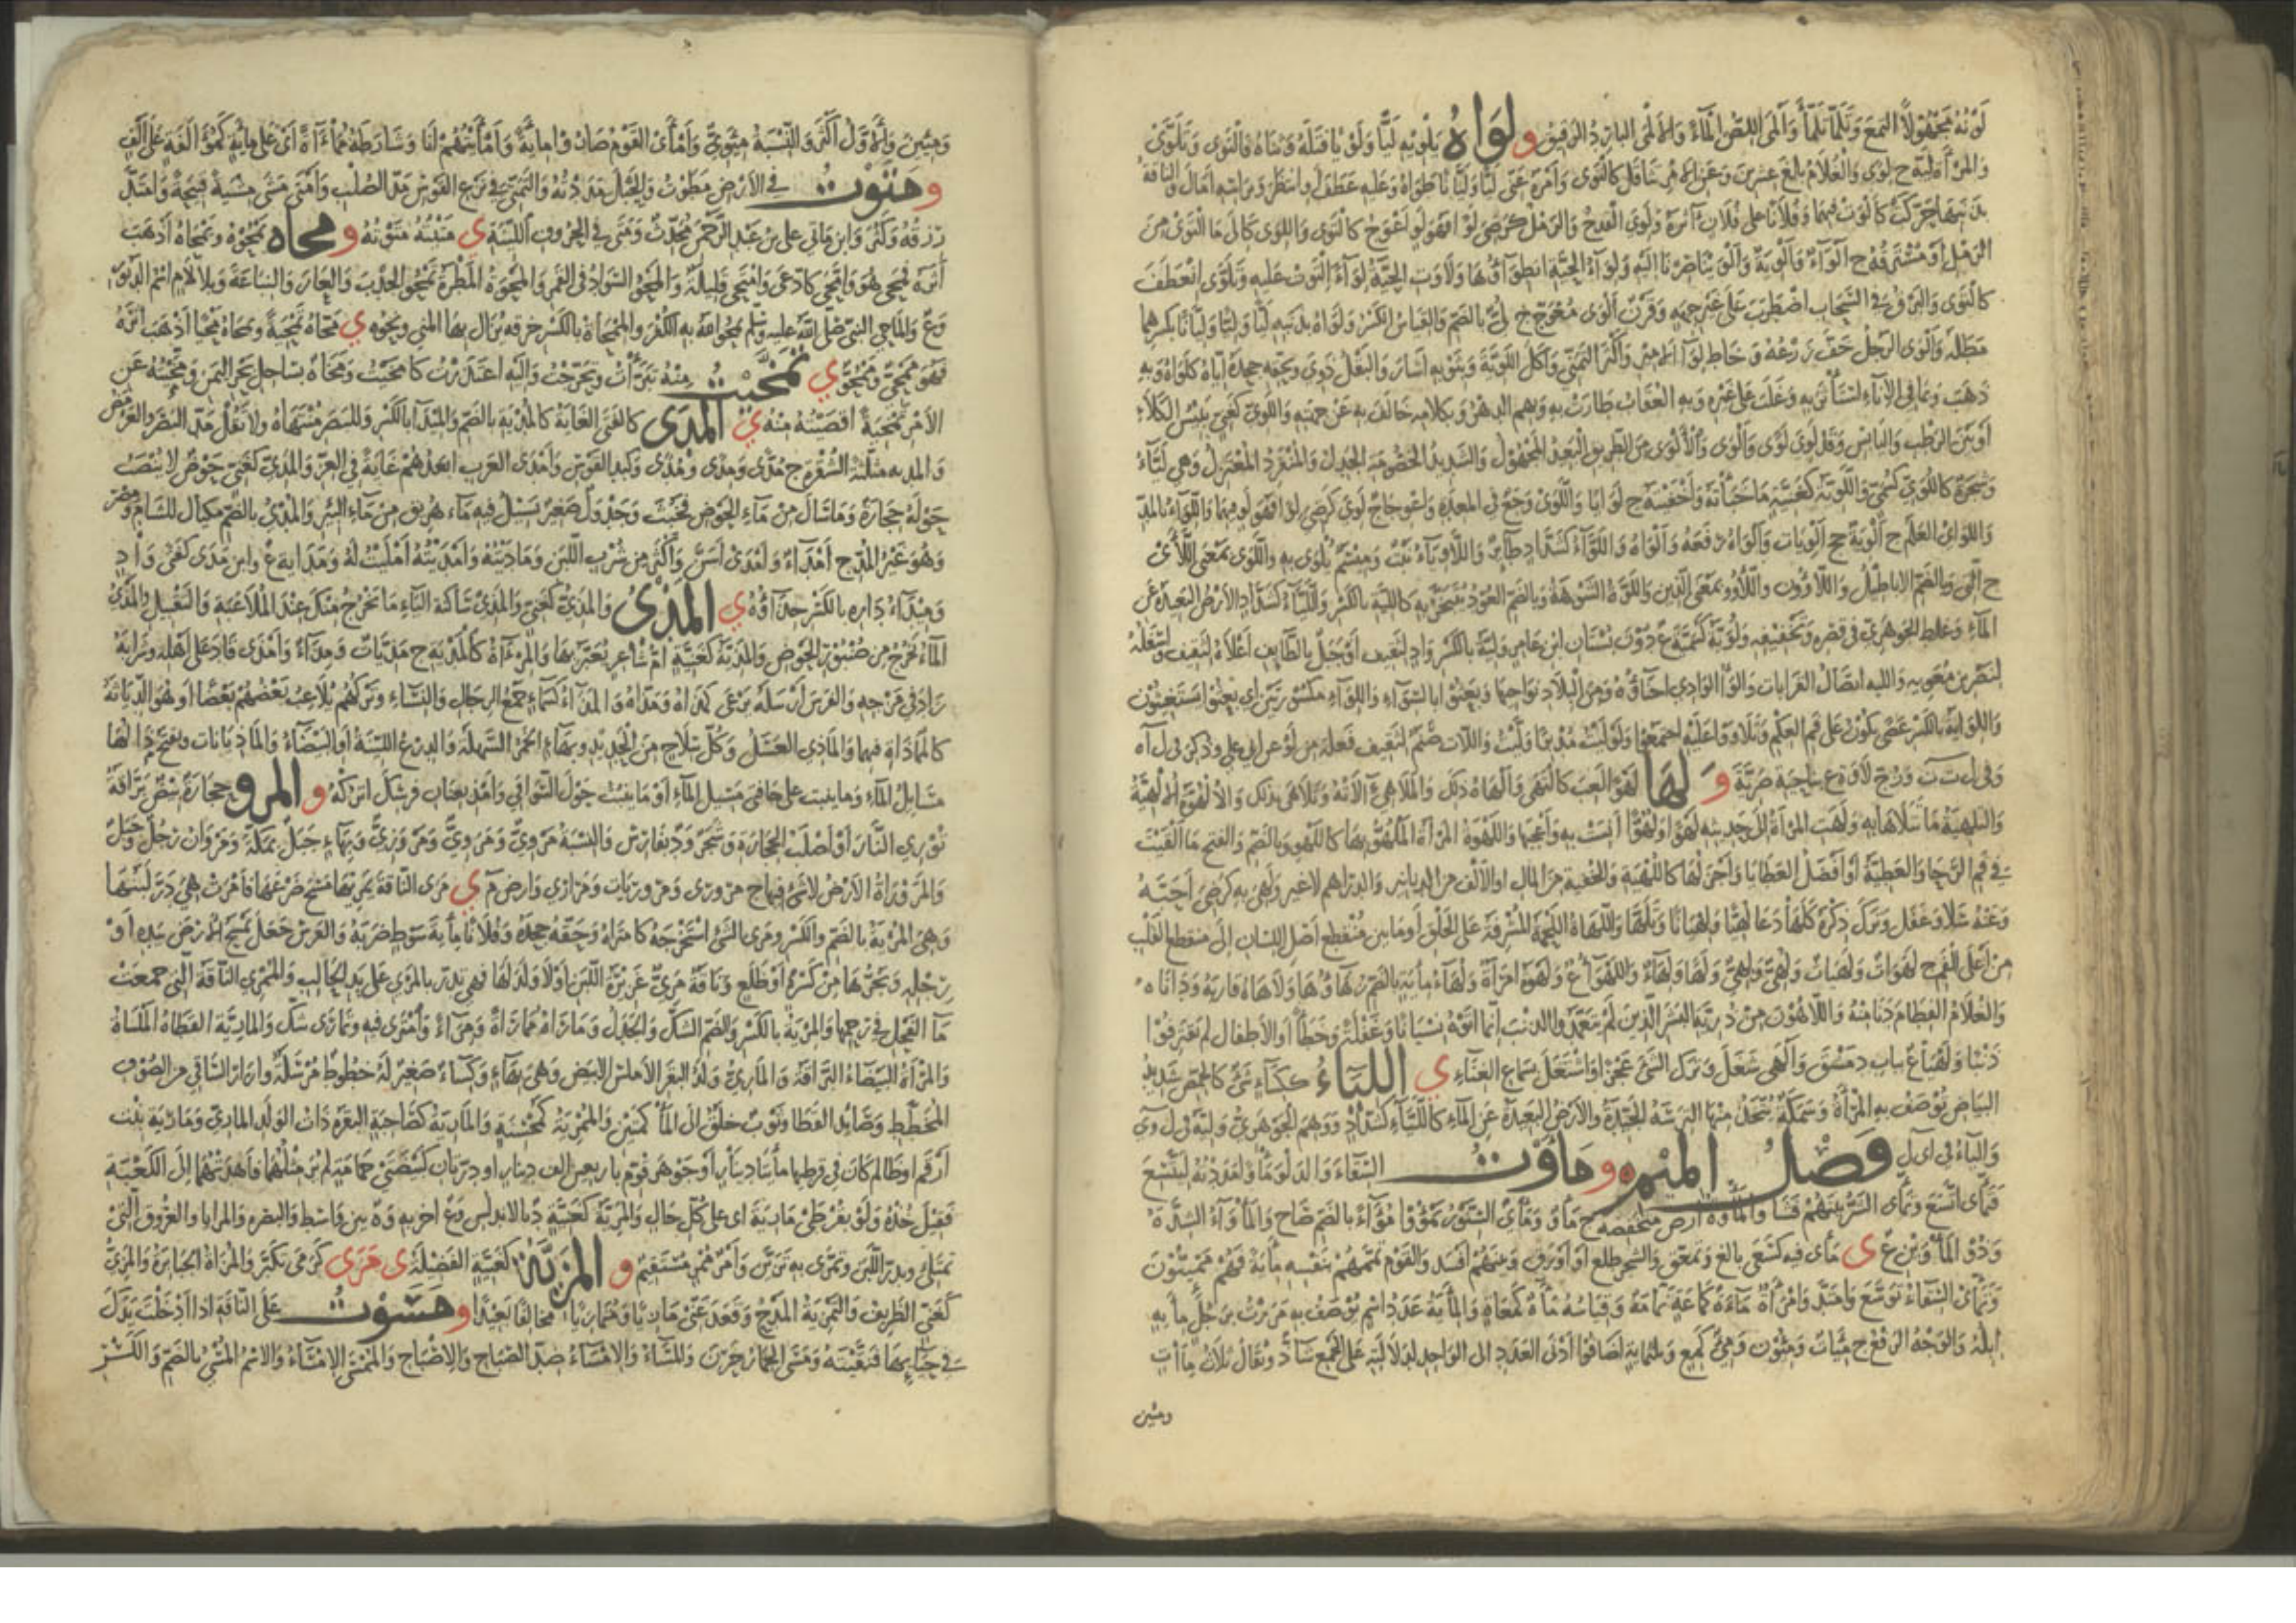 لونه مجهولا التمع وتلمأ تلمأ وألمى اللص الماء والألمى البارد الريق و لواه يلويه ليا ولويا فتله وثناه فالتوى وتلوى
والمرة لية ج لوى والغلام بلغ عشرين وعن الأمر تثاقل كالتوى وأمره عني ليا وليانا طواه وعليه عطف وانتظر وبرأسه أمال والناقة
بذنبها حركت كألوت فيهما وفلانا على فلان آثره ولوي القدح والرمل كرضي لوى فهو لو اعوج كالتوى واللوى كإلى ما التوى من
الرمل أو مسترقه ج ألواء وألوية وألوينا صرنا إليه ولواء الحية انطواؤها ولاوت الحية لواء التوت عليه وتلوى انعطف
كالتوى والبرق في السحاب اضطرب على غير جهة وقرن ألوى معوج ج لي بالضم والقياس الكسر ولواه بدينه ليا وليا وليانا بكسرهما
مطله وألوى الرجل خف زرعه وخاط لواء الأمير وأكثر التمني وأكل اللوية وبثوبه أشار والبقل ذوى وبحقه جحده إياه كلواه وبه
ذهب وبما في الإناء استأثر به وغلب على غيره وبه العقاب طارت به وبهم الدهر وبكلامه خالف به عن جهته واللوي كغني يبيس الكلإ
أو بين الرطب واليابس وقد لوي لوى وألوى والألوى من الطريق البعيد المجهول والشديد الخصومة الجدل والمنفرد المعتزل وهي لياء
وشجرة كاللوي كسمي واللوية كغنية ما خبأته وأخفيته ج لوايا واللوى وجع في المعدة واعوجاج لوي كرضي لوى فهو لو فيهما واللواء بالمد
واللواي العلم ج ألوية جج ألويات وألواه رفعه وألواه واللواء كشداد طائر واللاوياء نبت وميسم يلوى به واللوى بمعنى اللأي
ج التي وبالضم الأباطيل واللاؤون واللاؤو بمعنى الذين واللوة الشوهة وبالضم العود يتبخر به كاللية بالكسر واللياء كشداد الأرض البعيدة عن
الماء وغلط الجوهري في قصره وتخفيفه ولوية كسمية ع دون بستان ابن عامر ولية بالكسر واد لثقيف أو جبل بالطائف أعلاه لثقيف وأسفله
لنصر بن معوية والليه أيضا القرابات وألواء الوادي أحناؤه ومن البلاد نواحيها وبعثوا بالسواء واللواء مكسورتين أي بعثوا يستغيثون
واللواية بالكسر عصى يكون على فم العكم وتلاووا عليه اجتمعوا ولوليت مدبرا وليت واللات صنم لثقيف فعلة من لوى عن أبي علي وذكر في ل ا ه
وفي ل ت ت ودرج لاوة ع بناحية ضرية و لها لهوا لعب كالتهى وألهاه ذلك والملاهي آلاته وتلاهى بذلك والألهوة الألهية
والتلهية ما يتلاهى به ولهت المرأة إلى حديثه لهوا ولهوا أنست به وأعجبها واللهوة المرأة الملهو بها كاللهو وبالضم والفتح ما ألقيت
في فم الرحا والعطية أو أفضل العطايا وأجزلها كاللهية والحفنة من المال أو الألف من الدنانير والدراهم لا غير ولهي به كرضي أحبه
وعنه سلا وغفل وترك ذكره كلها كدعا لهيا ولهيانا وتلهى واللهاة اللحمة المشرفة على الحلق أو ما بين منقطع أصل اللسان إلى منقطع القلب
من أعلى الفم ج لهوات ولهيات ولهي ولهي ولها ولهاء واللهواء ع ولهوة امرأة ولهاء مأية بالضم زهاؤها ولاهاه قاربه وداناه
والغلام الفطام دنا منه واللاهون من ذرية البشر الذين لم يتعمدوا الذنب إنما أتوه نسيانا وغفلة وخطأ أو الأطفال لم يقترفوا
ذنبا ولهيا ع بباب دمشق وألهى شغل وترك الشيء عجزا أو اشتغل بسماع الغناء ي اللياء ككساء شيء كالحمص شديد
البياض توصف به المرأة وسمكة يتخذ منها الترسة الجيدة والأرض البعيدة عن الماء كاللياء كشداد ووهم الجوهري ولية في ل و ي
والياء في اي ل فصل الميم و مأوت السقاء والدلو مأوا مددته ليتسع
فتمأى اتسع وتمأى الشر بينهم فشا والمأوة أرض منخفضة ج مأو ومأى السنور يمؤو مواء بالضم صاح والمأواء الشدة
وذو المأوين ع ي مأى فيه كسعى بالغ وتعمق والشجر طلع أو أورق وبينهم أفسد والقوم تممهم بنفسه مأية فهم ممئيون
وتمأى السقاء توسع وامتد وامرأة ماءة كماعة نمامة وقياسه مآة كمعاة والمأية عدد اسم يوصف به مررت برجل مأية
إبله والوجه الرفع ج مئات ومئون ومئ كمع وثلثمأية أضافوا أدنى العدد إلى الواحد لدلالته على الجمع شاذ ويقال ثلاث مأات
ومئين
ومئين والأول أكثر والنسبة مئوي وأمأى القوم صاروا مأية وأمأيتهم أنا وشارطه مماءاة أي على مأية كمؤالفة على ألف
و متوت في الأرض مطوت والحبل مددته والتمتي في نزع القوس مد الصلب وأمتى مشى مشية قبيحة وامتد
رزقه وكثر وابن ماتى علي بن عبد الرحمن محدث ومتى في الحروف اللينة ي متيته متوته و محاه يمحوه ويمحاه أذهب
أثره فمحى هو وامحى كادعى وامتحى قليلة والمحو السواد في القمر والمحوة المطرة تمحو الجدب والعار والساعة وبلا لام اسم الدبور
وع والماحي النبي صلى الله عليه وسلم يمحو الله به الكفر والممحاة بالكسر خرقة يزال بها المني ونحوه ي محاه يمحيه ويمحاه محيا أذهب أثره
فهو ممحي وممحو ي تمخيت منه تبرأت وتحرجت وإليه اعتذرت كامخيت ومخاة بساحل بحر اليمن ومخيته عن
الأمر تمخية أقصيته منه ي المدى كالفتى الغاية كالمدية بالضم والميداء بالكسر وللبصر منتهاه ولا تقل مد البصر والعرمض
والمدية مثلثة الشفرة ج مدى ومدى ومدى وكبد القوس وأمدى العرب أبعدهم غاية في العز والمدي كغني حوض لا ينصب
حوله حجارة وما سال من ماء الحوض فخبث وجدول صغير يسيل فيه ماء هريق من ماء البئر والمدي بالضم مكيال للشام ومصر
وهو غير المد ج أمداء وأمدى أسن وأكثر من شرب اللبن وماديته وأمديته أمليت له ومداية ع وابن مدى كفتى واد
وميداء داره بالكسر حذاؤه ي المذي والمذي كغني والمذي ساكنة الياء ما يخرج منك عند الملاعبة والتقبيل والمذي
الماء يخرج من صنبور الحوض والمذية كغنية أم شاعر يعير بها والمرءاة كالمذية ج مذيات ومذاء وأمذى قاد على أهله وشرابه
زاد في مزجه والفرس أرسله يرعى كمذاه ومذاه والمذاء كسماء جمع الرجال والنساء وتركهم يلاعب بعضهم بعضا أو هو الدياثة
كالمماذاة فيهما والماذي العسل وكل سلاح من الحديد وبهاء الخمر السهلة والدرع اللينة أو البيضاء والماذيانات وتفتح ذالها
مسايل الماء وما ينبت على حافتي مسيل الماء أو ما ينبت حول السواقي وأمذ بعنان فرسك اتركه و المرو حجارة بيض براقة
توري النار أو أصلب الحجارة وشجر ود بفارس والنسبة مروي ومروي ومروزي وبهاء جبل بمكة ومروان رجل وجبل
والمروراة الأرض لا شيء فيها ج مرورى ومروريات ومراري وأرض م ي مرى الناقة يمريها مسح ضرعها فأمرت هي در لبنها
وهي المرية بالضم والكسر ومرى الشيء استخرجه كامتراه وحقه جحده وفلانا مأية سوط ضربه والفرس جعل يمسح الأرض بيده أو
رجله ويجرها من كسر أو ظلع وناقة مري غزيرة اللبن أو لا ولد لها فهي تدر بالمري على يد الحالب والممري الناقة التي جمعت
ماء الفحل في رحمها والمرية بالكسر والضم الشك والجدل وماراه مماراة ومراء وامترى فيه وتمارى شك والمارية القطاة الملساة
والمرأة البيضاء البراقة والماري ولد البقر الأملس الأبيض وهي بهاء وكساء صغير له خطوط مرسلة وإزار الساقي من الصوف
المخطط وصائد القطا وثوب خلق إلى المأكمتين والممرية كمحسنة والمارية كصاحبة البقرة ذات الولد الماري ومارية بنت
أرقم أو ظالم كان في قرطها مأيتا دينار أو جوهر قوم بأربعين ألف دينار أو درتان كبيضتي حمامة لم ير مثلهما فأهدتهما إلى الكعبة
فقيل خذه ولو بقرطي مارية أي على كل حال والمرية كغنية د بالأندلس وع آخر به وة بين واسط والبصرة والمرايا العروق التي
تمتلئ وتدر اللبن وتمرى به تزين وأمر ممر مستقيم و المزية كغنية الفضيلة ي مزى كرمى تكبر والمزاة الجبابرة والمزي
كغني الظريف والتمزية المدح وقعد عني مازيا ومتمازيا مخالفا بعيدا و مسوت على الناقة إذا أدخلت يدك
في حيائها فنقيته ومسى الحمار حرن والمساء والإمساء ضد الصباح والإصباح والممسى الإمساء والاسم المسي بالضم والكسر